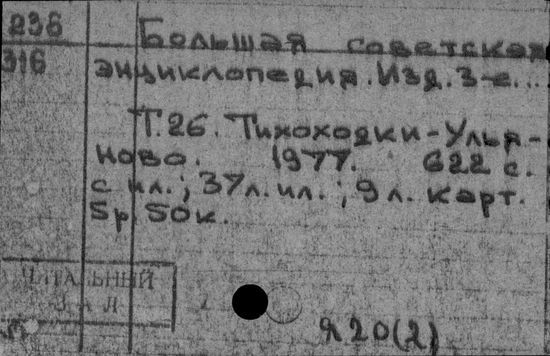 236
Большая советская
316
энциклопедия. Изд. 3-е...
Т.26. Тихоходки-Улья-
ново. 1977. 622 с.
с ил.; 37л.ил.; 9 л. карт.
5р. 50к.
ЧИТАЛЬНЫЙ
ЗАЛ
Я20(2)